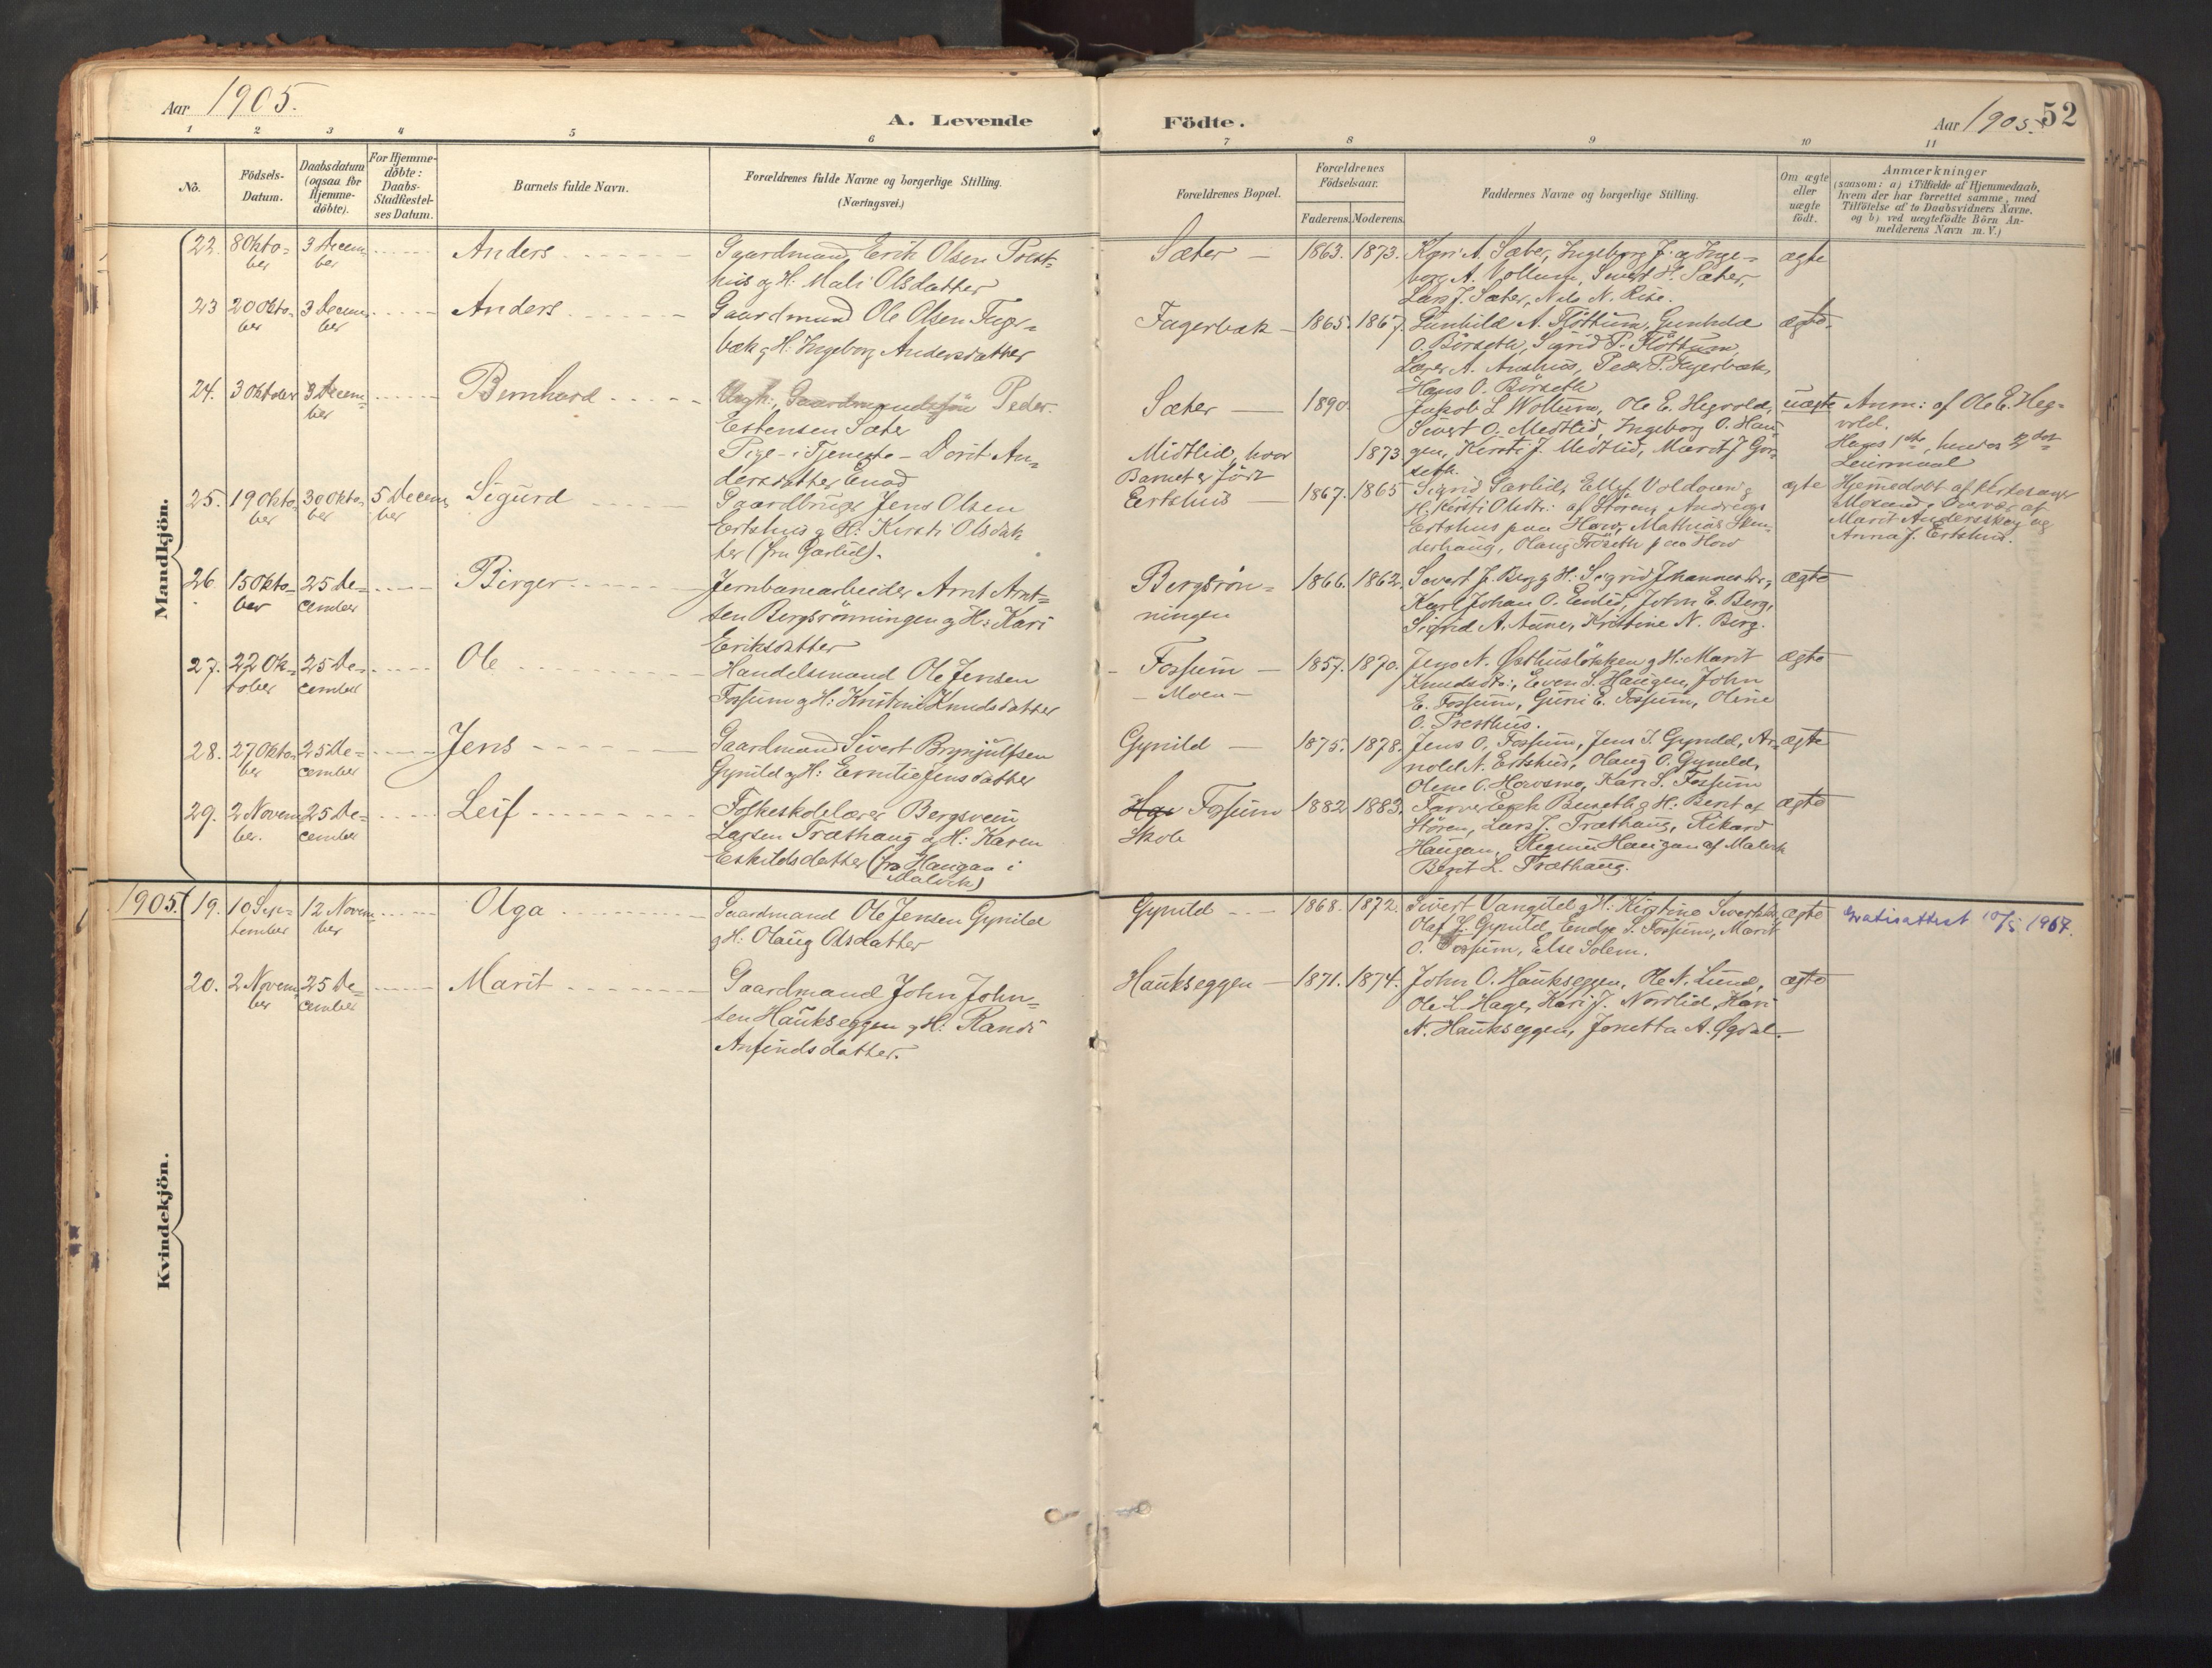 Aar 1905.
A. Levende
Födte.
Aar 1905. 52
1 2 3 4 5 6 7 8 9 10 11
No.
Födsels-
Datum.
Daabsdatum
(ogsaa for
Hjemme-
döbte).
For Hjemme-
döbte:
Daabs-
Stadfæstel-
ses Datum.
Barnets fulde Navn.
Forældrenes fulde Navne og borgerlige Stilling.
(Næringsvei.)
Forældrenes Bopæl.
Forældrenes
Födselsaar.
Faderens. Moderens.
Faddernes Navne og borgerlige Stilling.
Om ægte
eller
uægte
födt.
Anmærkninger
(saasom: a) i Tilfælde af Hjemmedaab,
hvem der har forrettet samme, med
Tilföielse af to Daabsvidners Navne,
og b) ved uægtefödte Börn An-
melderens Navn m. V.)
Mandkjön.
22. 8 Okto-
ber
3 Decem-
ber
Anders
Gaardmand Erik Olsen Præst-
hus og H. Mali Olsdatter
Sæter
1863. 1873.
Kari A. Sæter, Ingeborg J. og Inge-
borg A. Vollum, Sivert H. Sæter,
Lars J. Sæter, Nils N. Rise.
ægte
23 20 Okto-
ber
3 Decem-
ber
Anders
Gaardmand Ole Olsen Fager-
bæk g H: Ingeborg Andersdatter
Fagerbæk
1865. 1867.
Gunhild A. Flöttum, Gunhild
O. Börseth, Sigrid P. Flöttum,
Lærer A. Aushus, Peder P. Fagerbæk,
Hans O. Börseth
ægte.
24. 3 Oktober
3 Decem-
ber
Bernhard
Ungk., Gaardmandssön Peder
Estensen Sæter
Pige i Tjeneste Dorit An-
dersdatter
Sæter
Midtlid, hvor
Barnet er födt
1890.
1873
Jakob L Wollum, Ole E. Hegvold,
Sivert O. Medtlid, Ingeborg O. Hau-
gen, Kirsti J. Midtlid, Marit J Gor-
seth.
uægte
Anm: af Ole E. Heg-
vold.
Hans 1ste, hendes 2det
Leiermaal
25. 19 Okto-
ber
30 Okto-
ber
5 Decem-
ber
Sigurd
Gaardbruger Jens Olsen
Ertshus g H: Kirsti Olsdat-
ter (fra Garlid).
Ertshus
1867. 1865
Sigrid Garlid, Ellef Voldouen g
H. Kirsti Olsdtr: af Stören, Andreas
Ertshus paa Hov, Mathias Sken-
derhaug, Olaug Fröseth paa Hov
ægte
Hjemmedöbt af Kirkesanger
Morand. Overvær af
Marit Andersskog og
Anna J. Ertshus.
26. 15 Okto-
ber
25 De-
cember
Birger
Jernbanearbeider Arnt Arnt-
sen Bergsrönningen g H: Kari
Eriksdatter
Bergsrön-
ningen
1866. 1862.
Sivert J. Berg g H: Sigrid Johannesdtr.,
Karl Johan O. Endlid, John E. Berg,
Sigrid A. Aune, Kristine N. Berg.
ægte
27. 22 Ok-
tober
25 De-
cember
Ole
Handelsmand Ole Jensen
Fossum g H: Kristine Knudsdatter
Fossum
Moen
1857. 1870.
Jens N. Østhuslökken g H: Marit
Knudsdtr:, Even S. Haugen, John
E. Fossum, Guri E. Fossum, Oline
O. Presthus.
ægte
28. 27 Okto-
ber
25 De-
cember
Jens
Gaardmand Sivert Brynjulfsen
Gynild g H: Emilie Jensdatter
Gynild
1875. 1878.
Jens O. Fossum, Jens J. Gynild, Ar-
nold N. Ertshus, Olaug O. Gynild,
Oline O. Hovsmo, Kari S. Fossum
ægte
29. 2 Novem-
ber.
25 De-
cember
Leif
Folkeskolelærer Bergsvein
Larsen Træthaug g H: Karen
Eskildsdatter (fra Haugan i
Malvik)
Fossum
Skole
1882 1883.
Farver Erik Buseth g H: Berit af
Stören, Lars J. Træthaug, Rikard
Haugan, Regine Haugan af Malvik
Berit L. Træthaug.
ægte
Kvindekjön.
1905. 19. 10 Sep-
tember
12 Novem-
ber
Olga
Gaardmand Ole Jensen Gynild
g H: Olaug Olsdatter
Gynild
1868. 1872.
Sivert Vangild g H: Kirstine Sivertsdtr,
Olaf J. Gynild, Endre S. Fossum, Marit
O. Fossum, Else Solem.
ægte
Gratisattest 10/5 1967.
20. 2 Novem-
ber
25 De-
cember
Marit
Gaardmand John John-
sen Haukseggen g H: Randi
Anfindsdatter.
Haukseggen
1871. 1874.
John O. Haukseggen, Ole N. Lund,
Ole L. Hage, Kari J. Nordlid, Kari
N. Haukseggen, Jonetta A. Øgdal.
ægte